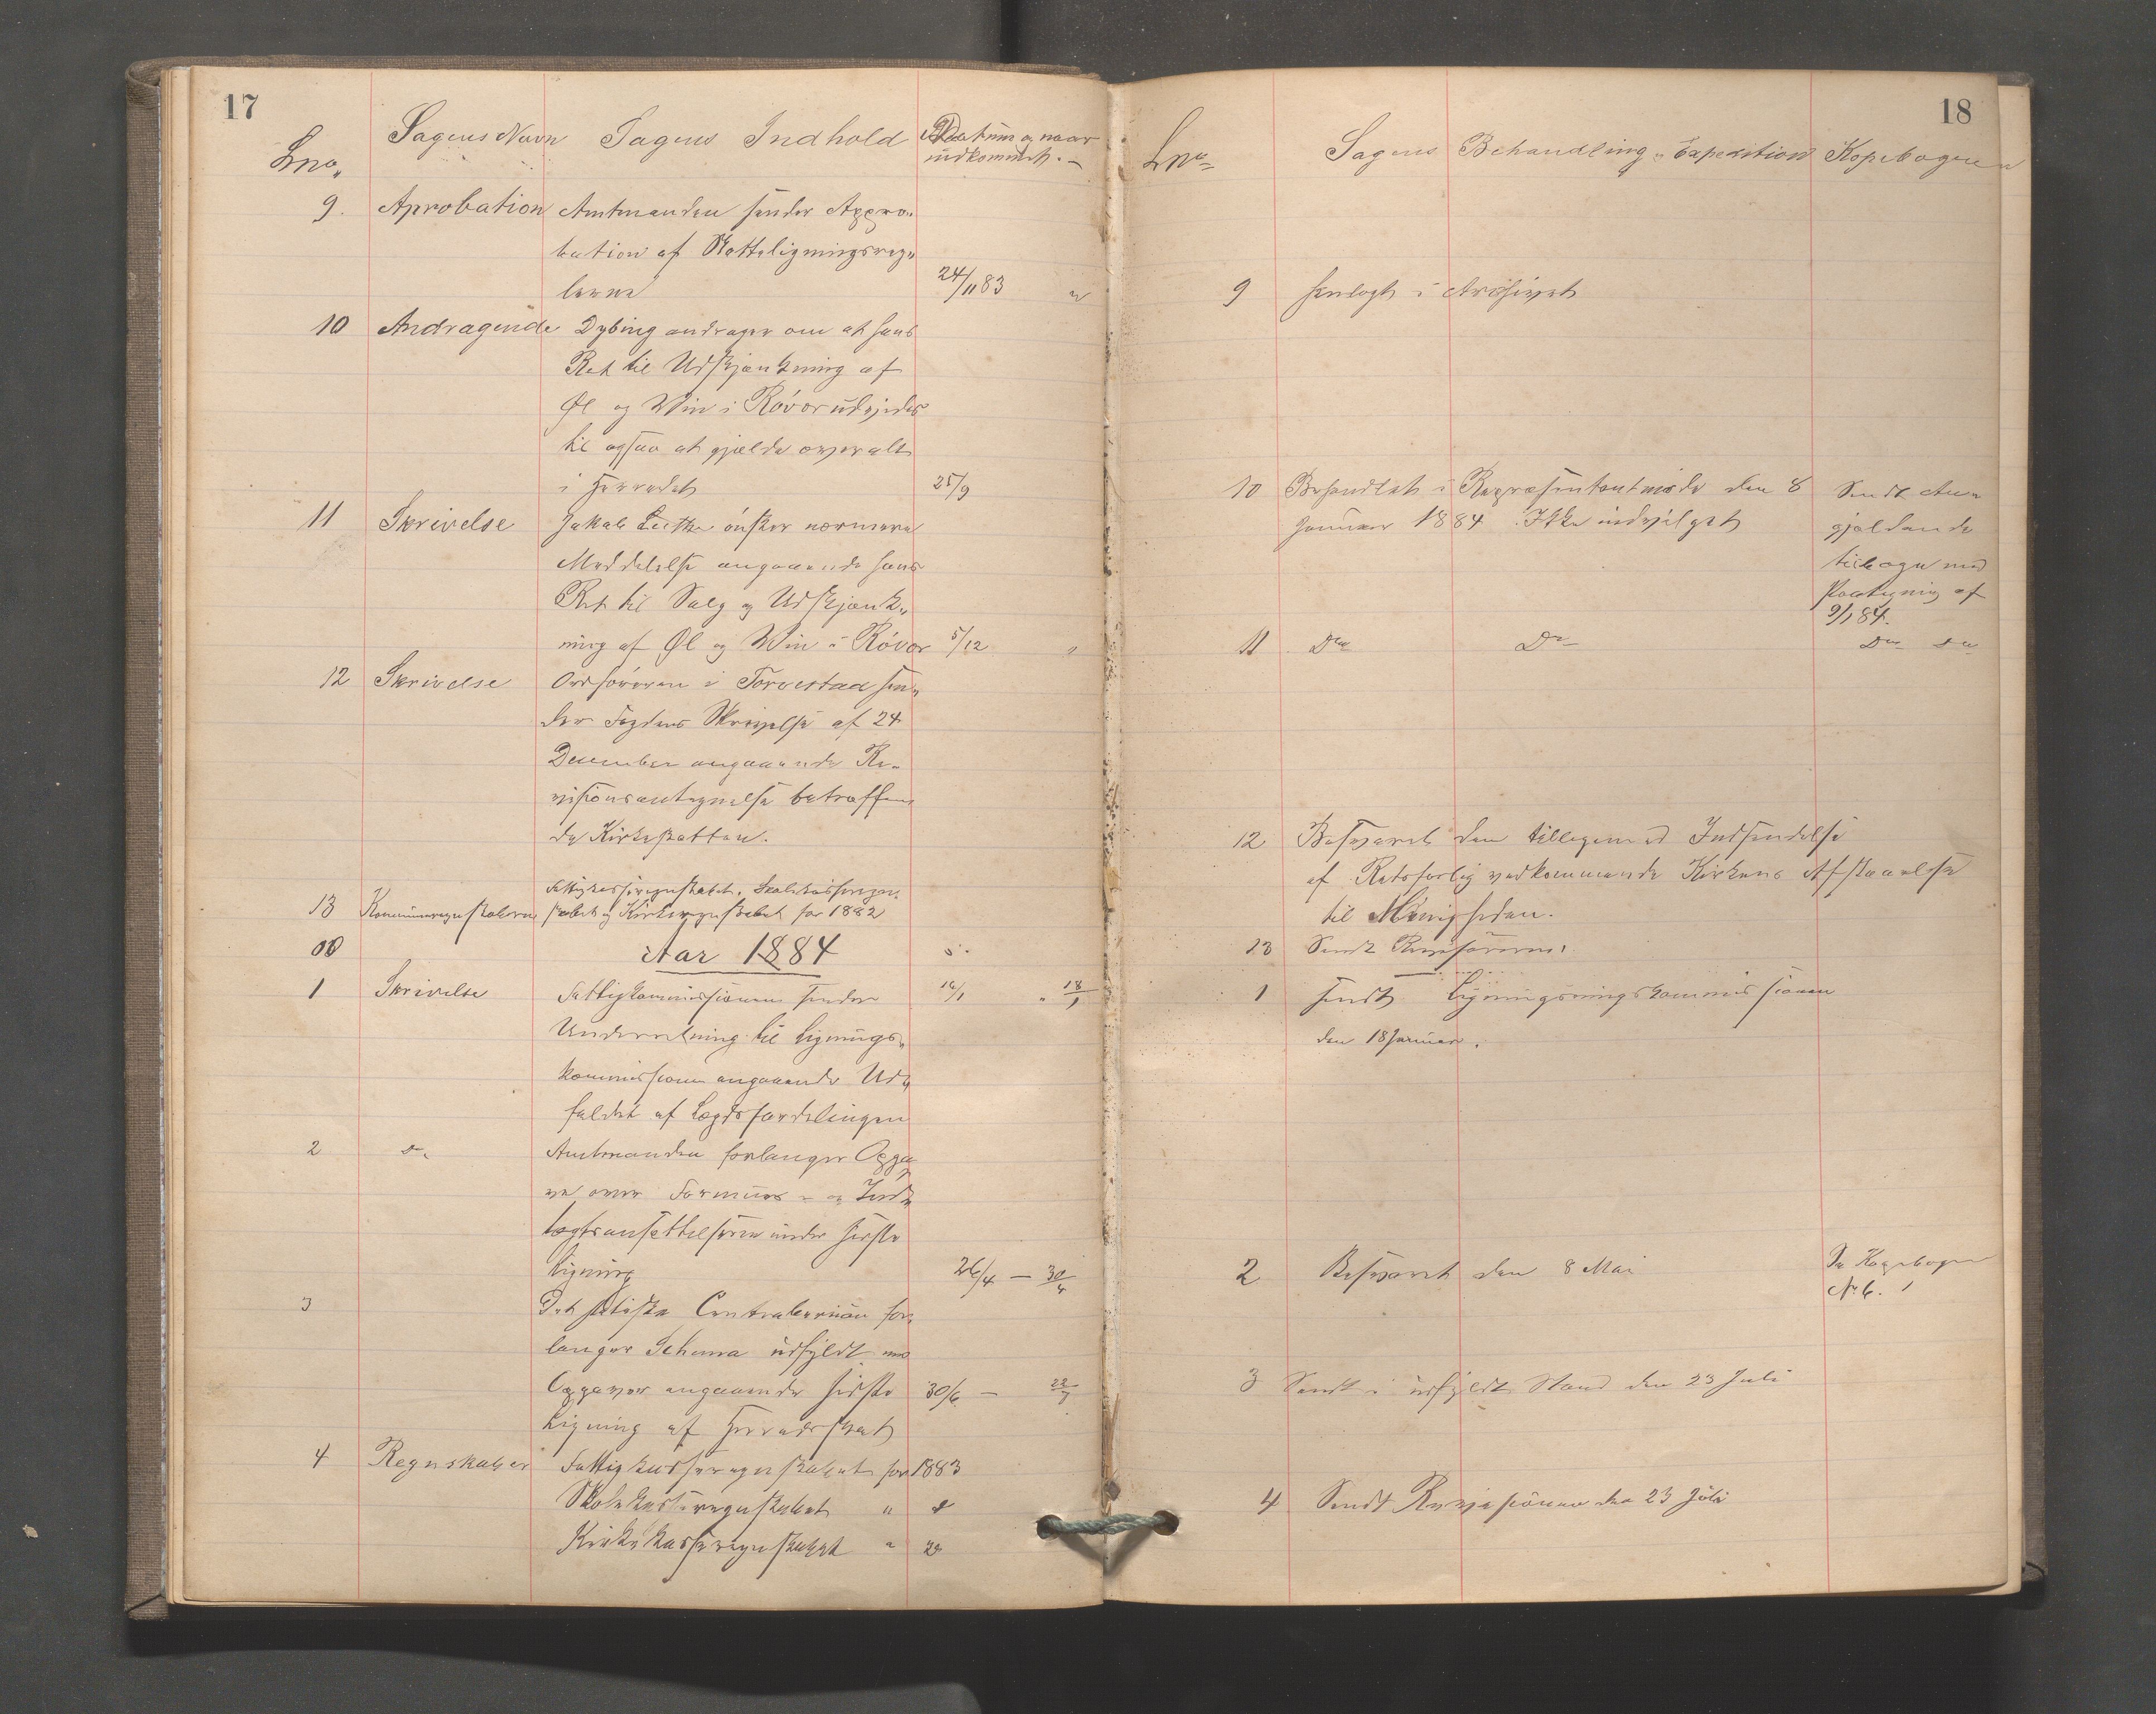 17
Lno.
Sagens Navn
Sagens Indhold
Datum og naar
indkommet.
9. Aprobation Amtmanden sender Appro„
bation af Skatteligningsreg„
lerne 24/11 83 „
10 Andragende Dybing andrager om at hans
Ret til Udskjænkning af
Øl og Vin i Röver udvides
til ogsaa at gjælde overalt
i Herredet 25/9
11 Skrivelse Jakob önsker nærmere
Meddelelse angaaende hans
Ret til Salg og Udskjænk„
ning af Øl og Vin i Röver 5/12 „
12 Skrivelse Ordföreren i Torvestad sen„
der Fogdens Skrivelse af 24
December angaaende Re„
visionsantegnelse betræffen
de Kirkeskatten.
Fattigkasseregnskabet, Skolekasseregn„
13 Kommuneregnskaberne skabet og Kirkeregnskabet for 1882
Aar 1884
1 Skrivelse Fattigkommissionen sender 16/1 „ 18/1
Underretning til Lignings„
kommissionen angaaende Ud„
faldet af Lægdsfordelingen
2 Do Amtmanden forlanger Opga„
ve over Formues- og Ind„
tægtsansættelserne under sidste
Ligning 26/4 — 30/4
3 Det statiske Centralbureau for„
langer Schema udfyldt med
Opgaver angaaende sidste 30/6 — 22/7
Ligning af Herredsskat
4 Regnskaber Fattigkasseregnskabet for 1883
Skolekasseregnskabet „
Kirkekasseregnskabet „
18
Lno
Sagens Behandling „ Expedition Kopebogen
9 Henlagt i Archivet
10 Behandlet i Repræsentantmøde den 8
Januar 1884. Ikke indvilget
Sendt An„
gjældende
tilbage med
Paategning af
9/1 84.
11 Do Do Do Do
12 Besvaret den tilligemed Indsendelse
af Retsforlig vedkommende Kirkens Afstaaelse
til Menigheden.
13 Sendt
1 Sendt Ligningsningskommissionen
den 18 Januar.
2 Besvaret den 8 Mai
Se Kopebogen
No 6.
3 Sendt i udfyldt Stand den 23 Juli
4 Sendt Revisionen den 23 Juli